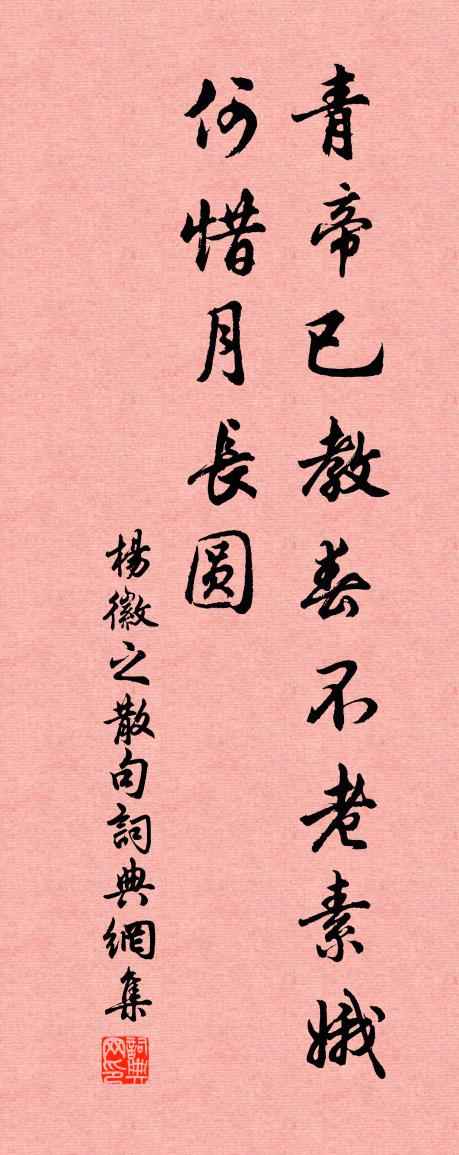 青帝已教春不老素娥
何惜月長圆
楊徽之散句詞典網集
詞典网印